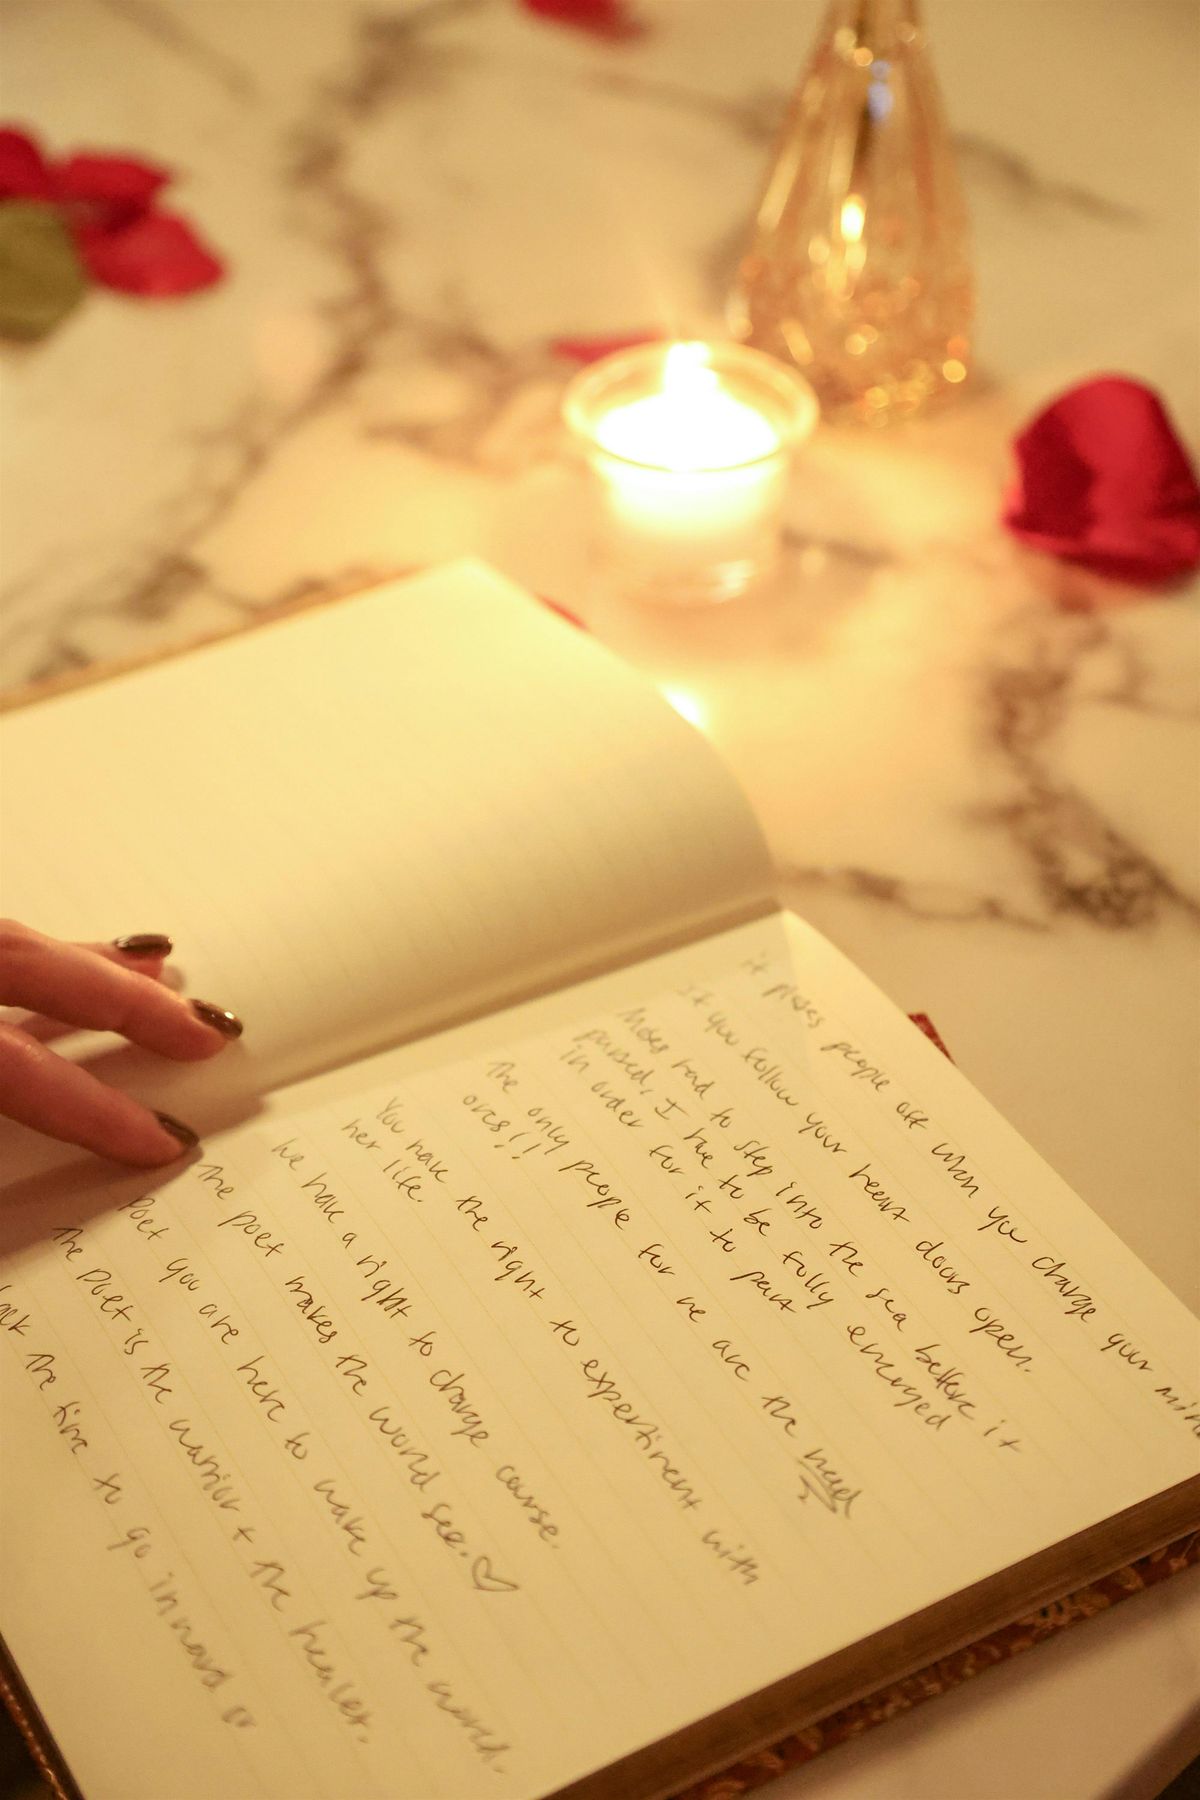 it pisses people off when you change your mind
If you follow your heart doors open.
Moses had to step into the sea before it
parsed, I have to be fully emerged
in order for it to part
The only people for me are the mad
ones!!
You have the right to experiment with
her life.
We have a right to change course.
The poet makes the world see. ♡
Poet you are here to wake up the world.
The poet is the warrior + the healer.
Take the time to go inward